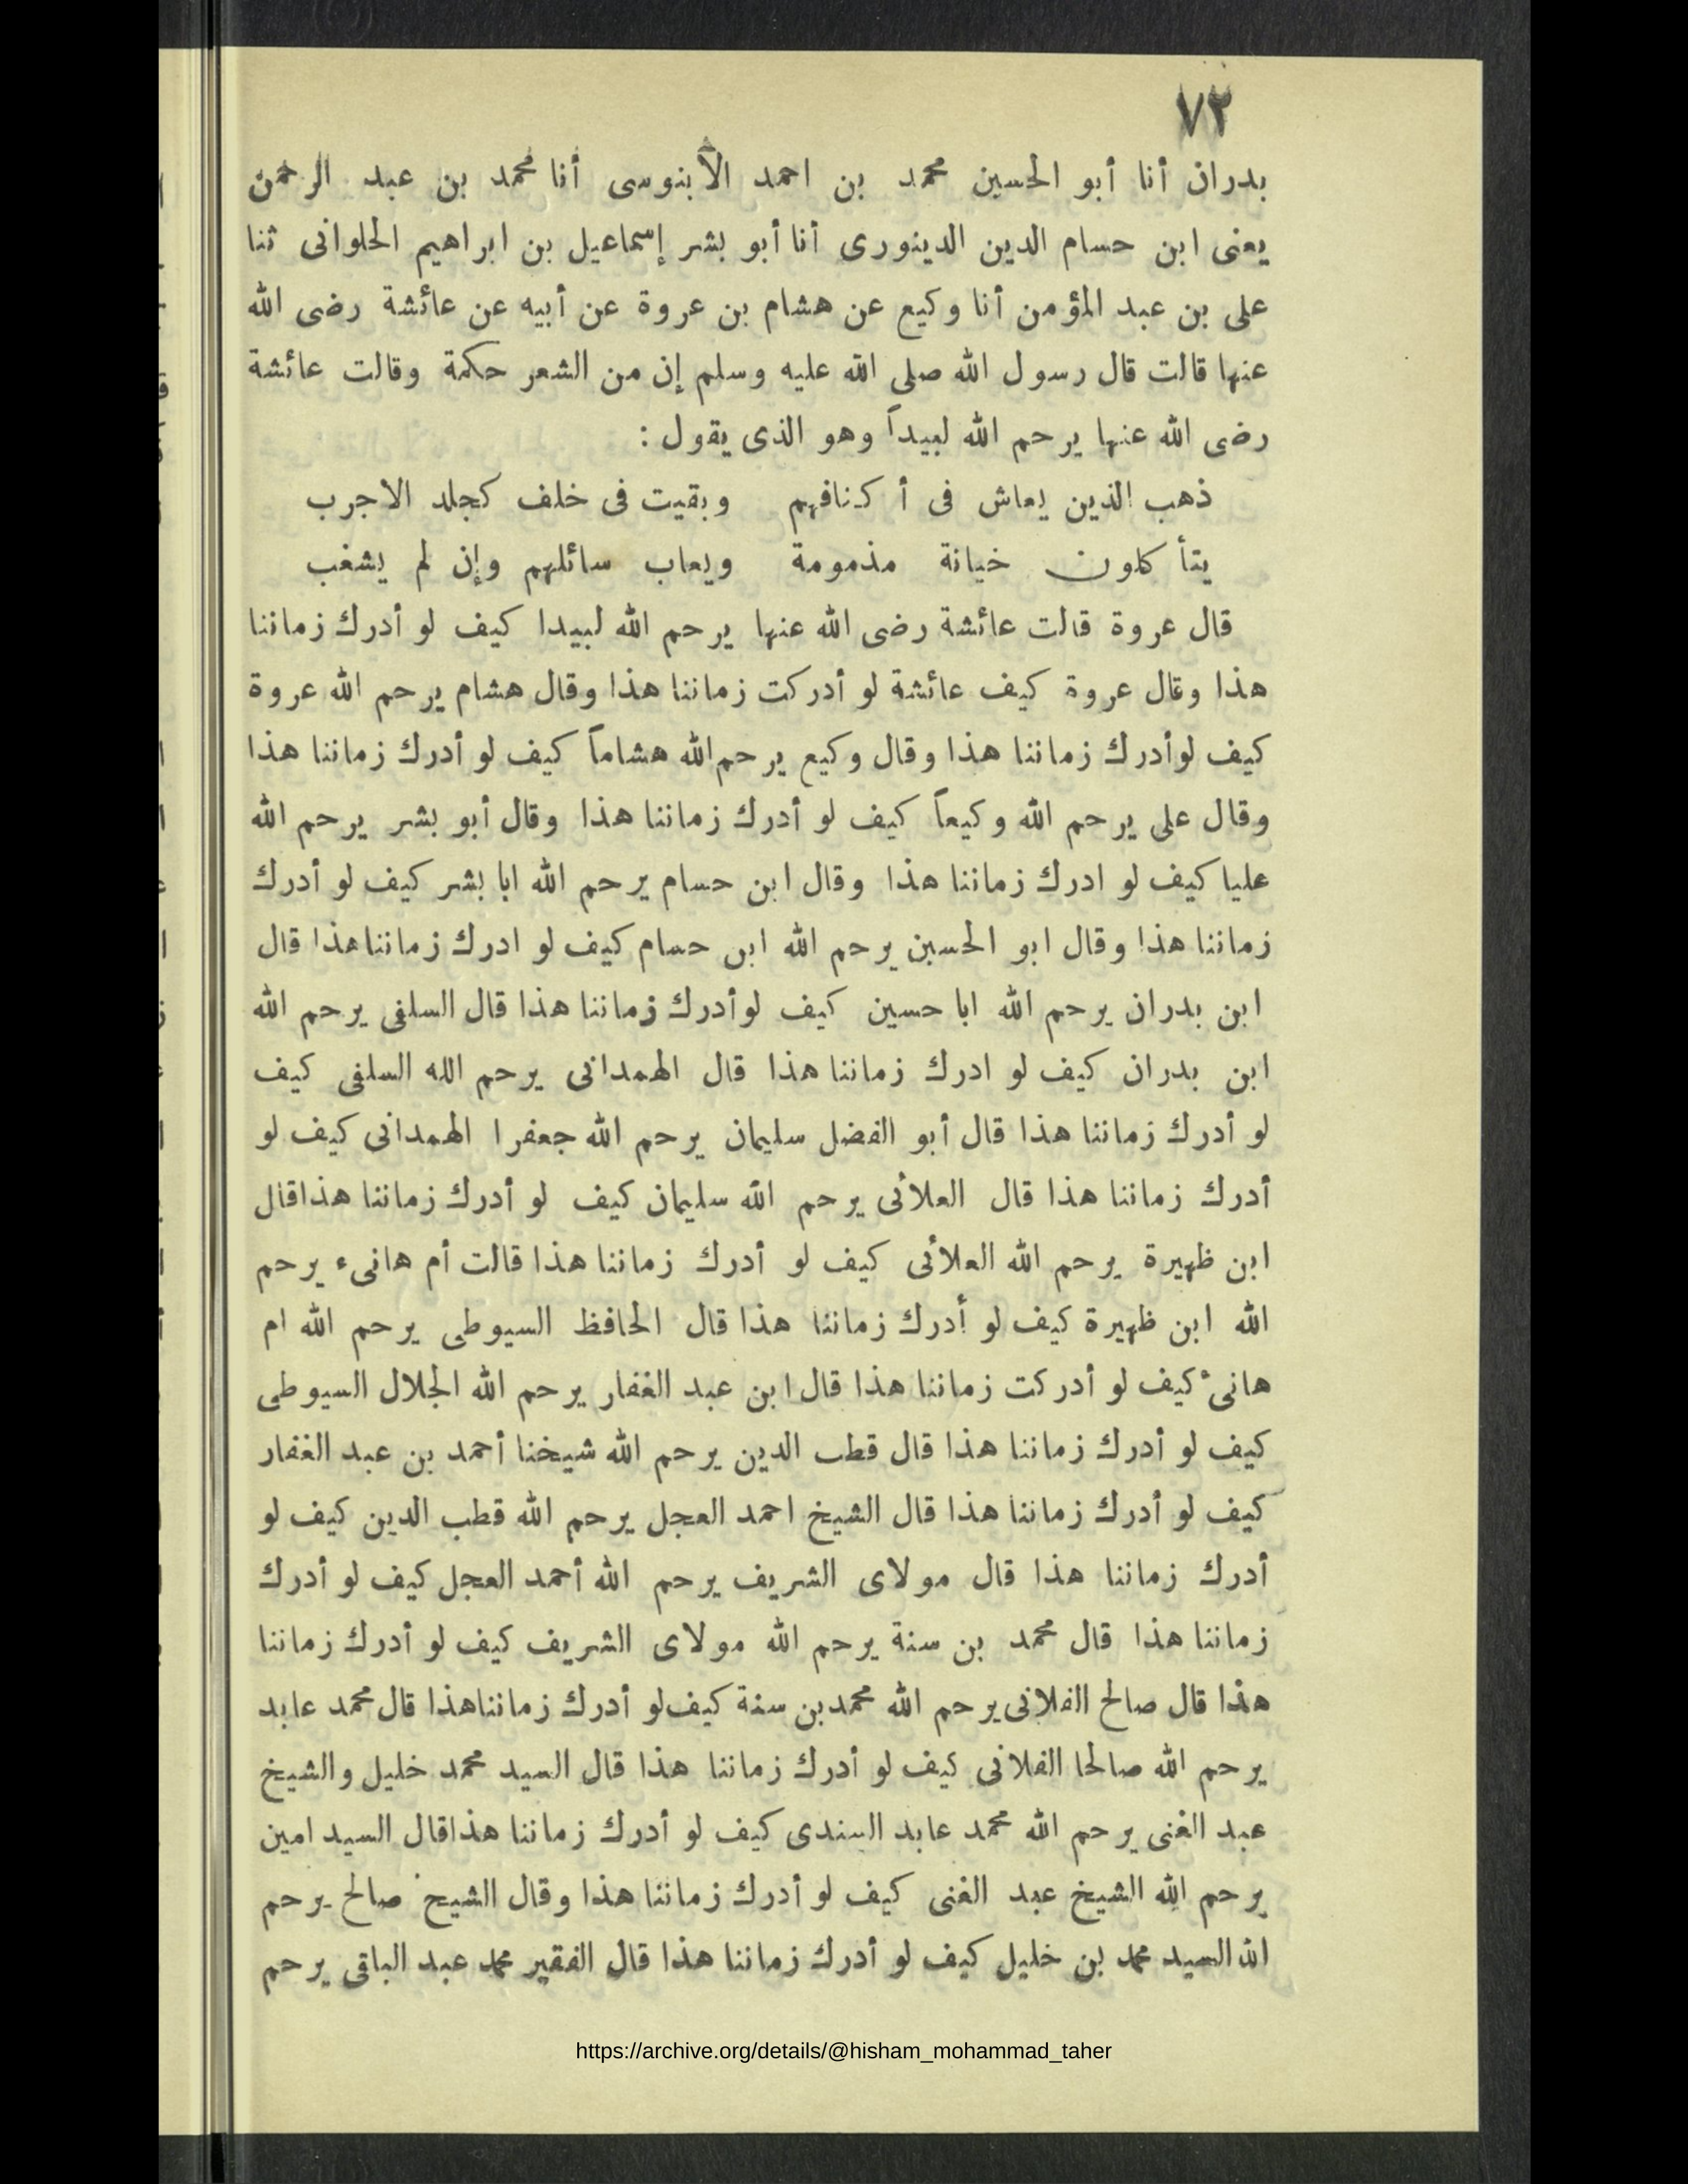 ٧٢
بدران أنا أبو الحسين محمد بن احمد الآبنوسى أنا محمد بن عبد الرحمن
يعنى ابن حسام الدين الدينورى أنا أبو بشر إسماعيل بن ابراهيم الحلوانى ثنا
على بن عبد المؤمن أنا وكيع عن هشام بن عروة عن أبيه عن عائشة رضى الله
عنها قالت قال رسول الله صلى الله عليه وسلم إن من الشعر حكمة وقالت عائشة
رضى الله عنها يرحم الله لبيداً وهو الذى يقول :
ذهب الذين يعاش فى أكنافهم وبقيت فى خلف كجلد الاجرب
يتأكلون خيانة مذمومة ويعاب سائلهم وإن لم يشغب
قال عروة قالت عائشة رضى الله عنها يرحم الله لبيدا كيف لو أدرك زماننا
هذا وقال عروة كيف عائشة لو أدركت زماننا هذا وقال هشام يرحم الله عروة
كيف لوأدرك زماننا هذا وقال وكيع يرحم الله هشاماً كيف لو أدرك زماننا هذا
وقال على يرحم الله وكيعاً كيف لو أدرك زماننا هذا وقال أبو بشر يرحم الله
عليا كيف لو ادرك زماننا هذا وقال ابن حسام يرحم الله ابا بشر كيف لو أدرك
زماننا هذا وقال ابو الحسين يرحم الله ابن حسام كيف لو ادرك زمانناهذا قال
ابن بدران يرحم الله ابا حسين كيف لوأدرك زماننا هذا قال السلفى يرحم الله
ابن بدران كيف لو ادرك زماننا هذا قال الهمدانى يرحم الله السلفى كيف
لو أدرك زماننا هذا قال أبو الفضل سليمان يرحم الله جعفرا الهمدانى كيف لو
أدرك زماننا هذا قال العلائى يرحم الله سليمان كيف لو أدرك زماننا هذاقال
ابن ظهيرة يرحم الله العلائى كيف لو أدرك زماننا هذا قالت أم هانىء يرحم
الله ابن ظهيرة كيف لو أدرك زماننا هذا قال الحافظ السيوطى يرحم الله ام
هانىء كيف لو أدركت زماننا هذا قال ابن عبد الغفار يرحم الله الجلال السيوطى
كيف لو أدرك زماننا هذا قال قطب الدين يرحم الله شيخنا أحمد بن عبد الغفار
كيف لو أدرك زماننا هذا قال الشيخ احمد العجل يرحم الله قطب الدين كيف لو
أدرك زماننا هذا قال مولاى الشريف يرحم الله أحمد العجل كيف لو أدرك
زماننا هذا قال محمد بن سنة يرحم الله مولاى الشريف كيف لو أدرك زماننا
هذا قال صالح الفلانى يرحم الله محمدبن سنة كيف لو أدرك زمانناهذا قال محمد عابد
يرحم الله صالحا الفلانى كيف لو أدرك زماننا هذا قال السيد محمد خليل والشيخ
عبد الغنى يرحم الله محمد عابد السندى كيف لو أدرك زماننا هذاقال السيد امين
يرحم الله الشيخ عبد الغنى كيف لو أدرك زماننا هذا وقال الشيخ صالح يرحم
الله السيد محمد بن خليل كيف لو أدرك زماننا هذا قال الفقير محمد عبد الباقى يرحم
https://archive.org/details/@hisham_mohammad_taher